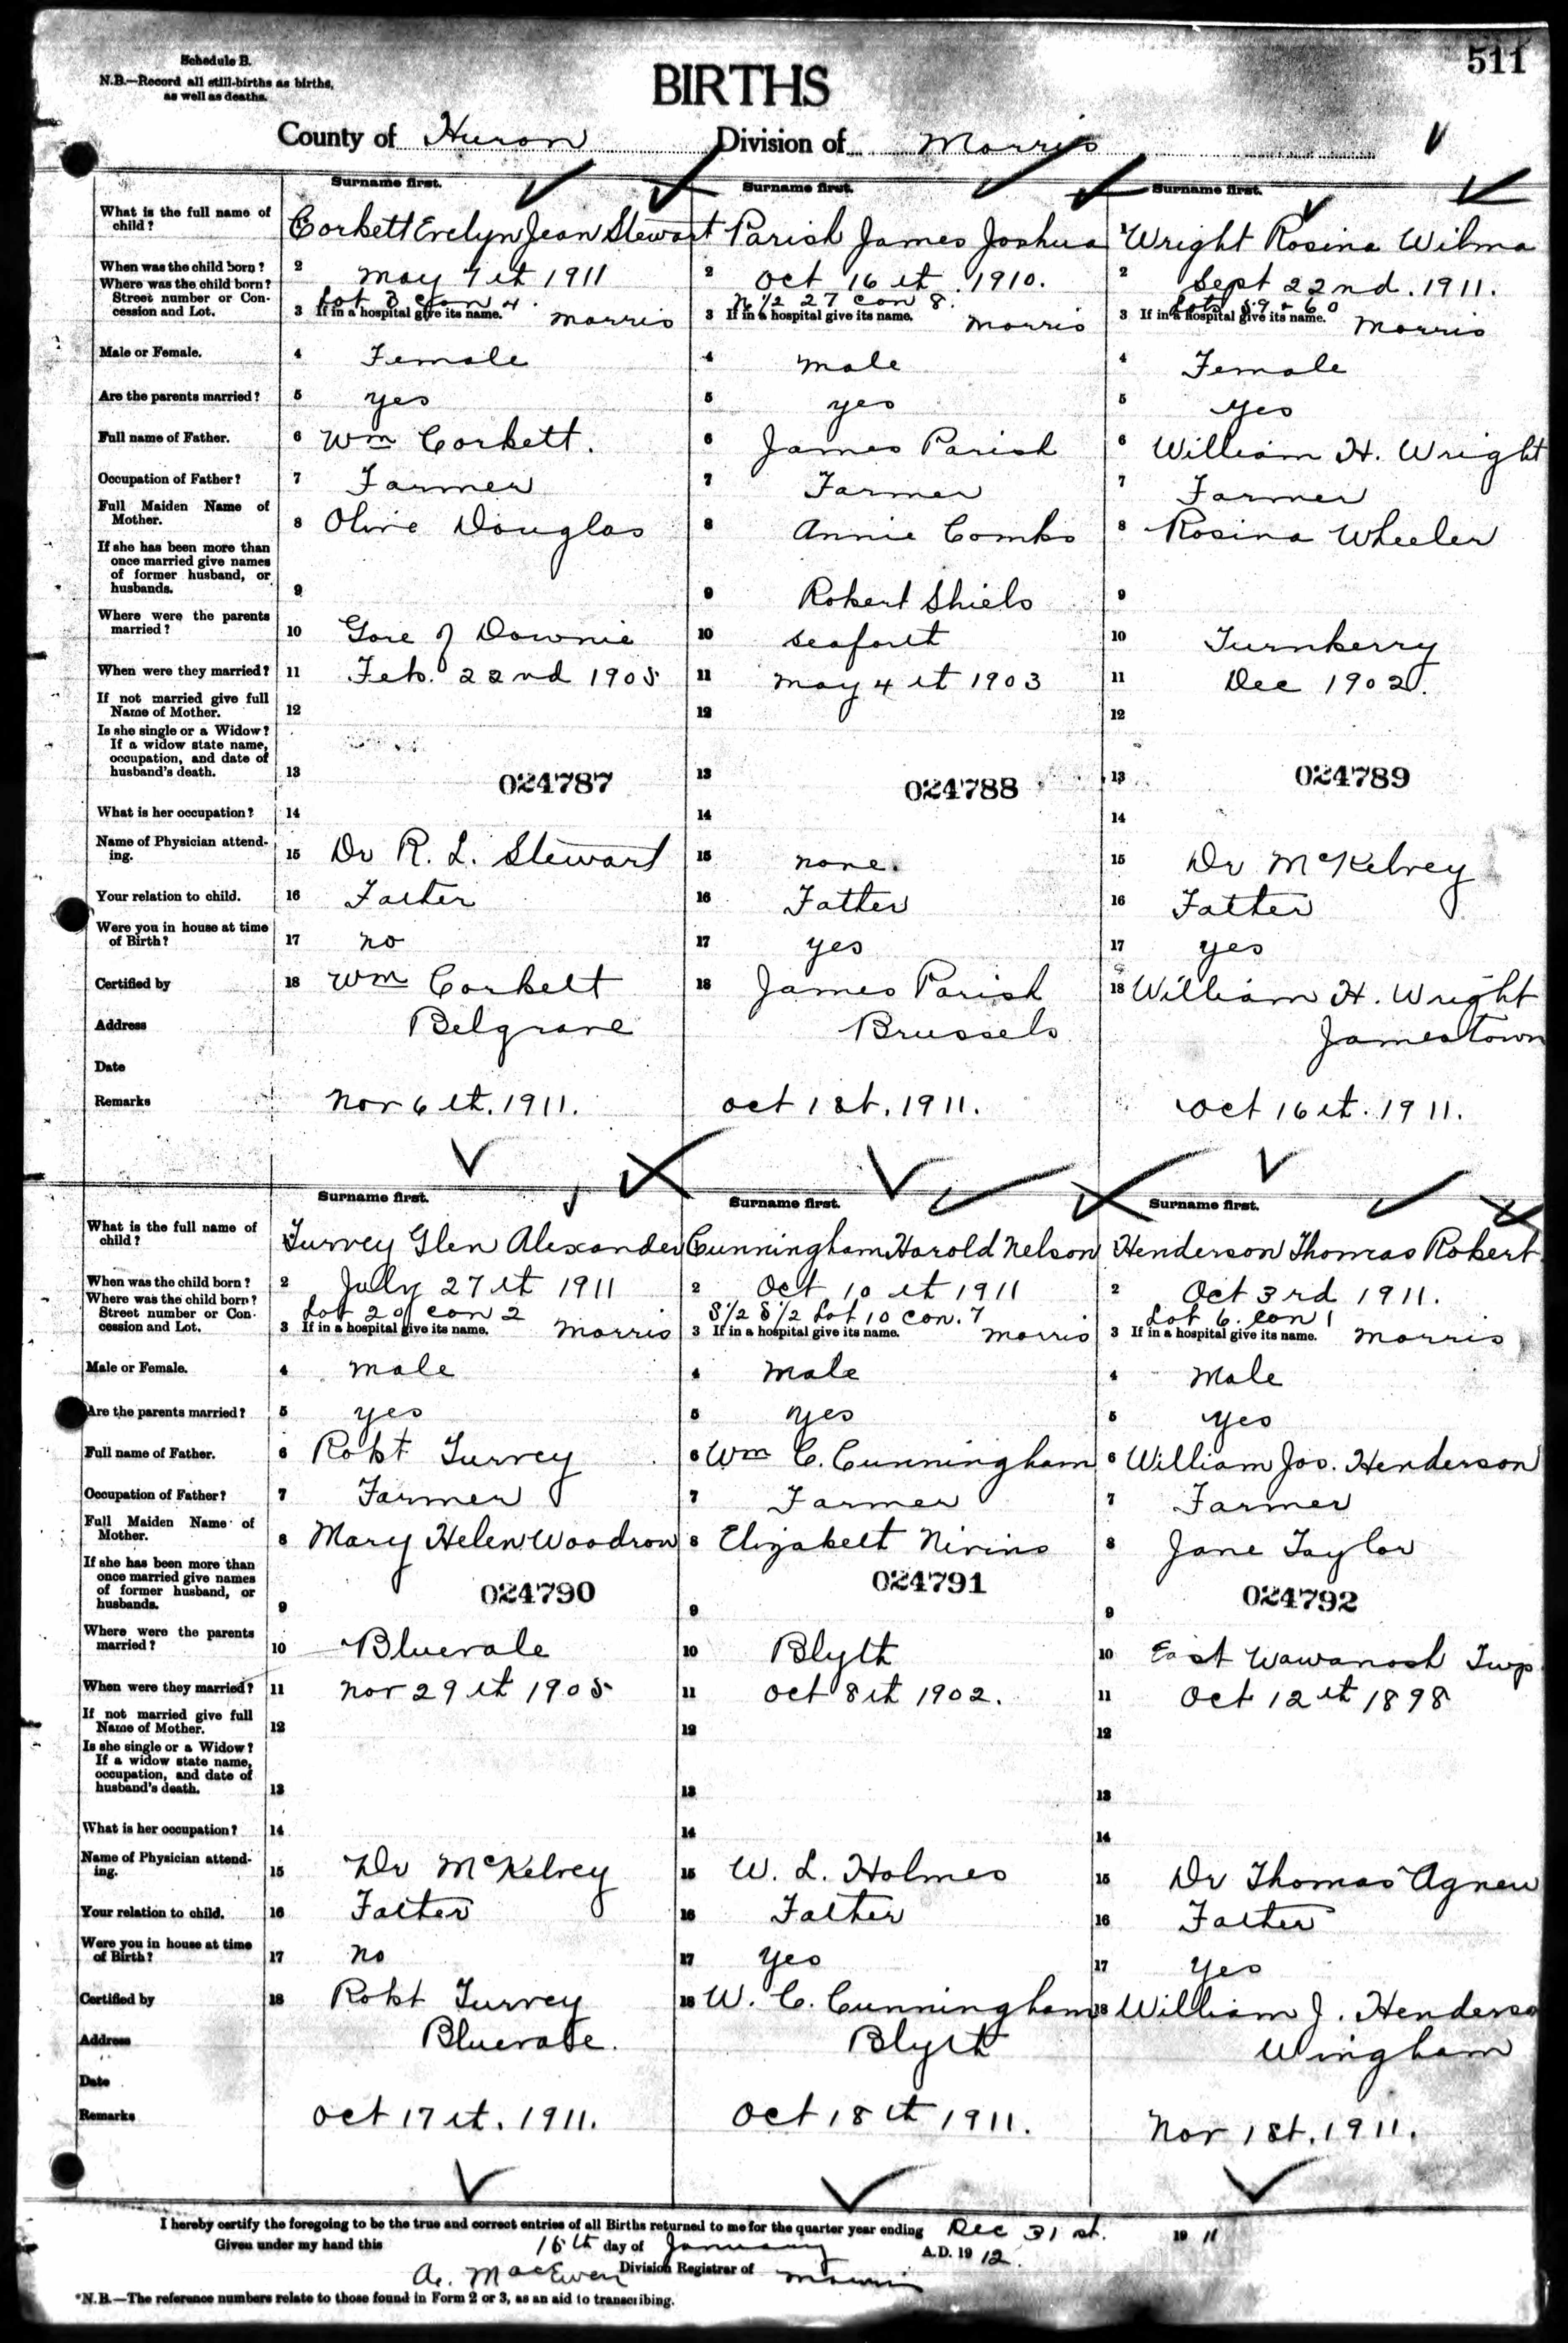 511
Schedule B.
N.B.—Record all still-births as births,
as well as deaths.
BIRTHS
County of Huron Division of Morris
Surname first. Surname first. Surname first.
What is the full name of child? Corbett Evelyn Jean Stewart Parish James Joshua 1 Wright Rosina Wilma
When was the child born? 2 May 7th 1911 2 Oct 16th 1910. 2 Sept 22nd. 1911.
Where was the child born? Street number or Concession and Lot. 3 Lot 3 Con 4. If in a hospital give its name. Morris 3 N 1/2 27 Con 8. If in a hospital give its name. Morris 3 Lots 59 & 60 If in a hospital give its name. Morris
Male or Female. 4 Female 4 Male 4 Female
Are the parents married? 5 yes 5 yes 5 yes
Full name of Father. 6 Wm Corbett. 6 James Parish 6 William H. Wright
Occupation of Father? 7 Farmer 7 Farmer 7 Farmer
Full Maiden Name of Mother. 8 Olive Douglas 8 Annie Combs 8 Rosina Wheeler
If she has been more than once married give names of former husband, or husbands. 9 9 Robert Shiels 9
Where were the parents married? 10 Gore of Downie 10 Seaforth 10 Turnberry
When were they married? 11 Feb. 22nd 1905 11 May 4th 1903 11 Dec 1902.
If not married give full Name of Mother. 12 12 12
Is she single or a Widow? If a widow state name, occupation, and date of husband's death. 13 024787 13 024788 13 024789
What is her occupation? 14 14 14
Name of Physician attending. 15 Dr R. L. Stewart 15 none. 15 Dr McKelvey
Your relation to child. 16 Father 16 Father 16 Father
Were you in house at time of Birth? 17 no 17 yes 17 yes
Certified by 18 Wm Corbett 18 James Parish 18 William H. Wright
Address Belgrave Brussels Jamestown
Date
Remarks Nov 6th. 1911. Oct 1st. 1911. Oct 16th. 1911.
Surname first. Surname first. Surname first.
What is the full name of child? Turvey Glen Alexander Cunningham Harold Nelson Henderson Thomas Robert
When was the child born? 2 July 27th 1911 2 Oct 10th 1911 2 Oct 3rd 1911.
Where was the child born? Street number or Concession and Lot. 3 Lot 20 Con 2 If in a hospital give its name. Morris 3 S 1/2 S 1/2 Lot 10 Con. 7 If in a hospital give its name. Morris 3 Lot 6. Con 1 If in a hospital give its name. Morris
Male or Female. 4 Male 4 Male 4 Male
Are the parents married? 5 yes 5 yes 5 yes
Full name of Father. 6 Robt Turvey 6 Wm C. Cunningham 6 William Jos. Henderson
Occupation of Father? 7 Farmer 7 Farmer 7 Farmer
Full Maiden Name of Mother. 8 Mary Helen Woodrow 8 Elizabeth Nivins 8 Jane Taylor
If she has been more than once married give names of former husband, or husbands. 9 024790 9 024791 9 024792
Where were the parents married? 10 Bluevale 10 Blyth 10 East Wawanosh Twp.
When were they married? 11 Nov 29th 1905 11 Oct 8th 1902. 11 Oct 12th 1898
If not married give full Name of Mother. 12 12 12
Is she single or a Widow? If a widow state name, occupation, and date of husband's death. 13 13 13
What is her occupation? 14 14 14
Name of Physician attending. 15 Dr McKelvey 15 W. L. Holmes 15 Dr Thomas Agnew
Your relation to child. 16 Father 16 Father 16 Father
Were you in house at time of Birth? 17 no 17 yes 17 yes
Certified by 18 Robt Turvey 18 W. C. Cunningham 18 William J. Henderso
Address Bluevale. Blyth Wingham
Date
Remarks Oct 17th. 1911. Oct 18th 1911. Nov 1st. 1911.
I hereby certify the foregoing to be the true and correct entries of all Births returned to me for the quarter year ending Dec 31st. 19 11
Given under my hand this 15th day of January A.D. 19 12.
A. MacEwen Division Registrar of Morris
*N.B.—The reference numbers relate to those found in Form 2 or 3, as an aid to transcribing.